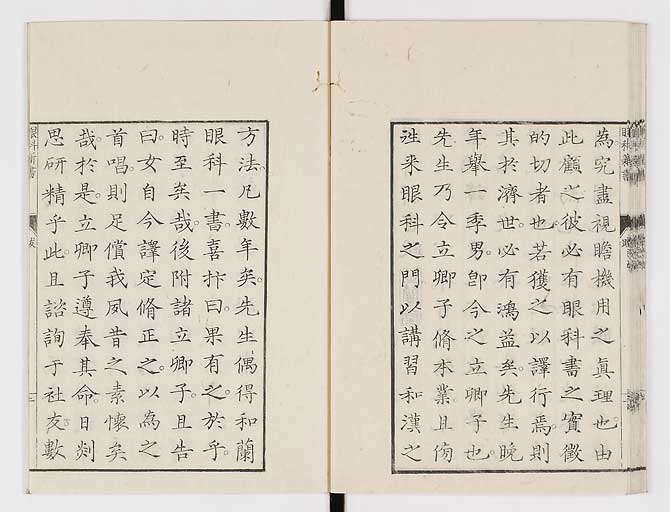 為究盡視瞻機用之眞理也由
此顧之彼必有眼科書之實徵
的切者也若獲之以譯行焉則
其於濟世必有鴻益矣先生晩
年舉一季男卽今之立卿子也
先生乃令立卿子脩本業且傍
徃来眼科之門以講習和漢之
方法凡數年矣先生偶得和蘭
眼科一書喜抃曰果有之於乎
時至矣哉後附諸立卿子且告
曰女自今譯定脩正之以為之
首唱則足償我夙昔之素懷矣
哉於是立卿子遵奉其命日剡
思研精乎此且諮詢于社友數
眼科新書
跋